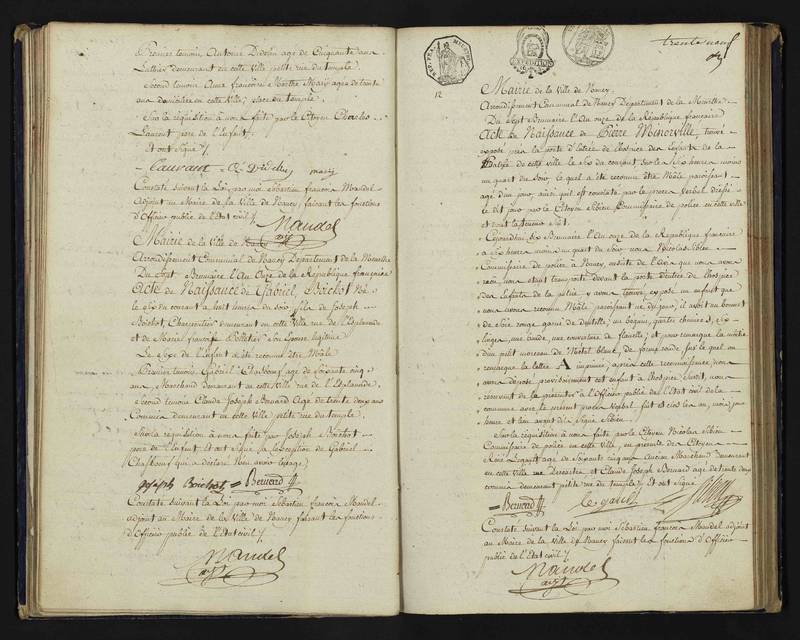 Premier temoin Antoine Didelin agé de Cinquante ans
Luthier demeurant en cette ville petite rue du temple.
Second temoin Anne françoise Marthe Mariy agée de trente
ans domiciliée en cette ville, place du temple.
Sur la réquisition à nous faite par le Citoyen Charles
Laurant pere de l'Enfant.
Et ont Signé /.
Laurant A Didelin mariy
Constaté suivant la Loi par moi Sébastien françois Mandel
adjoint au Maire de la Ville de Nancy, faisant les fonctions
d'Officier public de l'Etat civil /.
Mandel
adjt
Mairie de la Ville de Nancy
Arrondissement Communal de Nancy Departement de la Meurthe
Du Sept Brumaire l'An Onze de la République française
Acte de Naissance de Gabriel Boichot né
le six du courant à huit heures du soir, fils de Joseph
Boichot, Charpentier demeurant en cette Ville rue de l'Esplanade
et de Marie françoise Pelletier son Epouse légitime
Le sexe de l'Enfant a été reconnu être Mâle
Premier temoin Gabriel Chassoeuf agé de soixante cinq
ans, Marchand demeurant en cette Ville rue de l'Esplanade.
Second temoin Claude Joseph Bernard Agé de trente deux ans
Commis demeurant en cette Ville petite rue du temple.
Sur la réquisition à nous faite par Joseph Boichot
pere de l'Enfant. Et ont Signé à l'exception de Gabriel
qui a déclaré n'en avoir l'usage /
joseph Boichot Bernard
Constaté suivant la Loi par moi Sébastien françois Mandel
adjoint au Maire de la Ville de Nancy faisant les fonctions
d'Officier public de l'Etat civil /.
Mandel
adjt
trente neuf
12
Mairie de la Ville de Nancy.
Arrondissement Communal de Nancy Departement de la Meurthe
Du Sept Brumaire l'An onze de la République française
Acte de Naissance de Pierre Minorville, trouvé
exposé près la porte d'entrée de l'hospice des Enfants de la
Patrie de cette ville le six du courant sur les six heures moins
un quart du soir, lequel a été reconnu être Mâle paroissant
agé d'un jour, ainsi qu'il est constaté par le procès Verbal dressé
le dit jour par le Citoyen Commissaire de police en cette ville
et dont la teneur suit.
Cejourdhui six Brumaire l'An onze de la République française
à six heures moins un quart du soir nous Nicolas
Commissaire de police à Nancy, ensuite de l'avis que nous avons
reçu, nous étant transporté devant la porte d'entrée de l'hospice
des Enfants de la patrie, avons trouvé exposé un enfant que
nous avons reconnu Mâle paroissant né du jour, il avoit un bonnet
de soie rouge garni de dentelle, un béguin, quatre chemises, six
linges, une bande, une couverture de flanelle; et pour remarque la moitié
d'un petit morceau de Métal blanc, de forme ronde, sur lequel on
remarque la lettre A imprimée; après cette reconnoissance nous
avons déposé provisoirement cet enfant à l'hospice susdit, nous
reservant de la présenter à l'Officier public de l'Etat civil de la
commune avec le présent procès verbal fait et clos les an, mois, jour
heure et lieu avant dits. Signé
Sur la réquisition à nous faite par le Citoyen Nicolas
Commissaire de police en cette ville, en présence des Citoyens
René Legayst agé de soixante cinq ans Ancien Marchand demeurant
en cette Ville rue Descartes et Claude Joseph Bernard agé de trente deux
commis demeurant petite rue du temple /. Et ont Signé
Bernard
Constaté suivant la Loi par moi Sébastien françois Mandel adjoint
au Maire de la Ville de Nancy faisant les fonctions d'Officier
public de l'Etat civil /.
Mandel
adjt